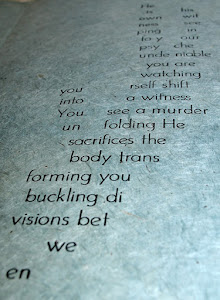 He
is his
own wit
ness see
ping in
to y our
psy che
unde niable
you are
watching
you rself shift
into a witness
You see a murder
un folding He
sacrifices the
body trans
forming you
buckling di
visions bet
we
en